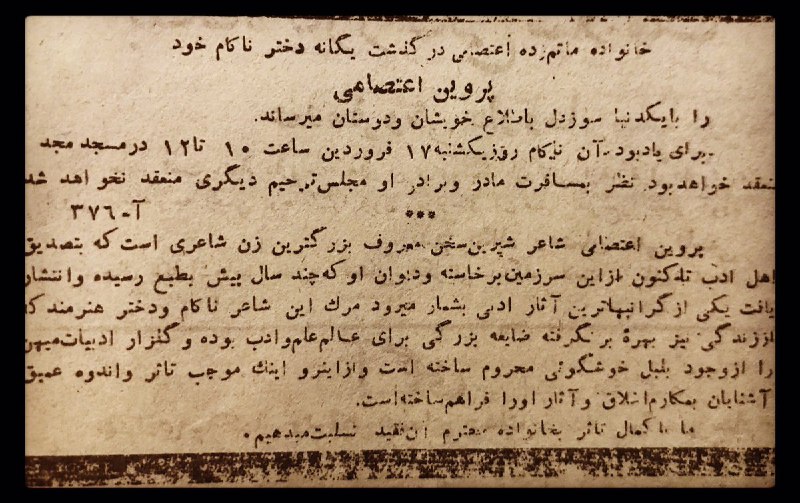 خانواده ماتم‌زده اعتصامی درگذشت یگانه دختر ناکام خود
پروین اعتصامی
را بایکدنیا سوزدل باطلاع خویشان ودوستان میرساند.
برای یادبود آن ناکام روزیکشنبه ۱۷ فروردین ساعت ۱۰ تا ۱۲ درمسجد مجد
منعقد خواهدبود نظر بمسافرت مادر وبرادر او مجلس‌ترحیم دیگری منعقد نخواهد شد
آ- ۳۷۶
***
پروین اعتصامی شاعر شیرین‌سخن معروف بزرگترین زن شاعری است که بتصدیق
اهل ادب تاکنون ازاین سرزمین‌برخاسته ودیوان او که‌چند سال پیش بطبع رسیده وانتشار
یافت یکی ازگرانبهاترین آثار ادبی بشمار میرود مرك این شاعر ناکام ودختر هنرمند که
اززندگی نیز بهرهٔ برنگرفته ضایعه بزرگی برای عالم‌علم‌وادب بوده و گلزار ادبیات‌میهن
را ازوجود بلبل خوشگوئی محروم ساخته است وازاینرو اینك موجب تاثر واندوه عمیق
آشنایان بمکارم‌اخلاق وآثار اورا فراهم‌ساخته‌است.
ما باکمال تاثر بخانواده محترم آن‌فقید تسلیت‌میدهیم.